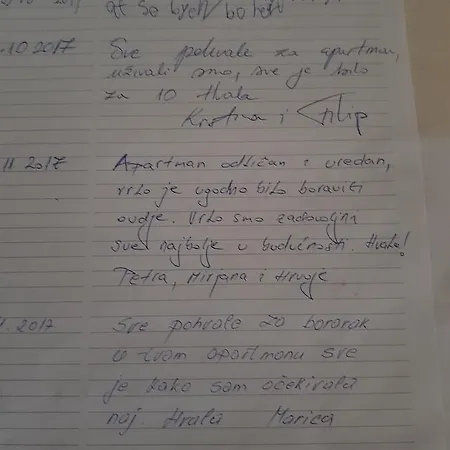 .10 2017 Sve pohvale za apartman,
uživali smo, sve je bilo
za 10 Hvala
Kristina i Filip
11 2017 Apartman odličan i uredan,
vrlo je ugodno bilo boraviti
ovdje. Vrlo smo zadovoljni
sve najbolje u budućnosti. Hvala!
Petra, Mirjana i Hrvoje
. 2017 Sve pohvale za boravak
u tvom apartmanu sve
je kako sam očekivala
naj. Hvala Marica